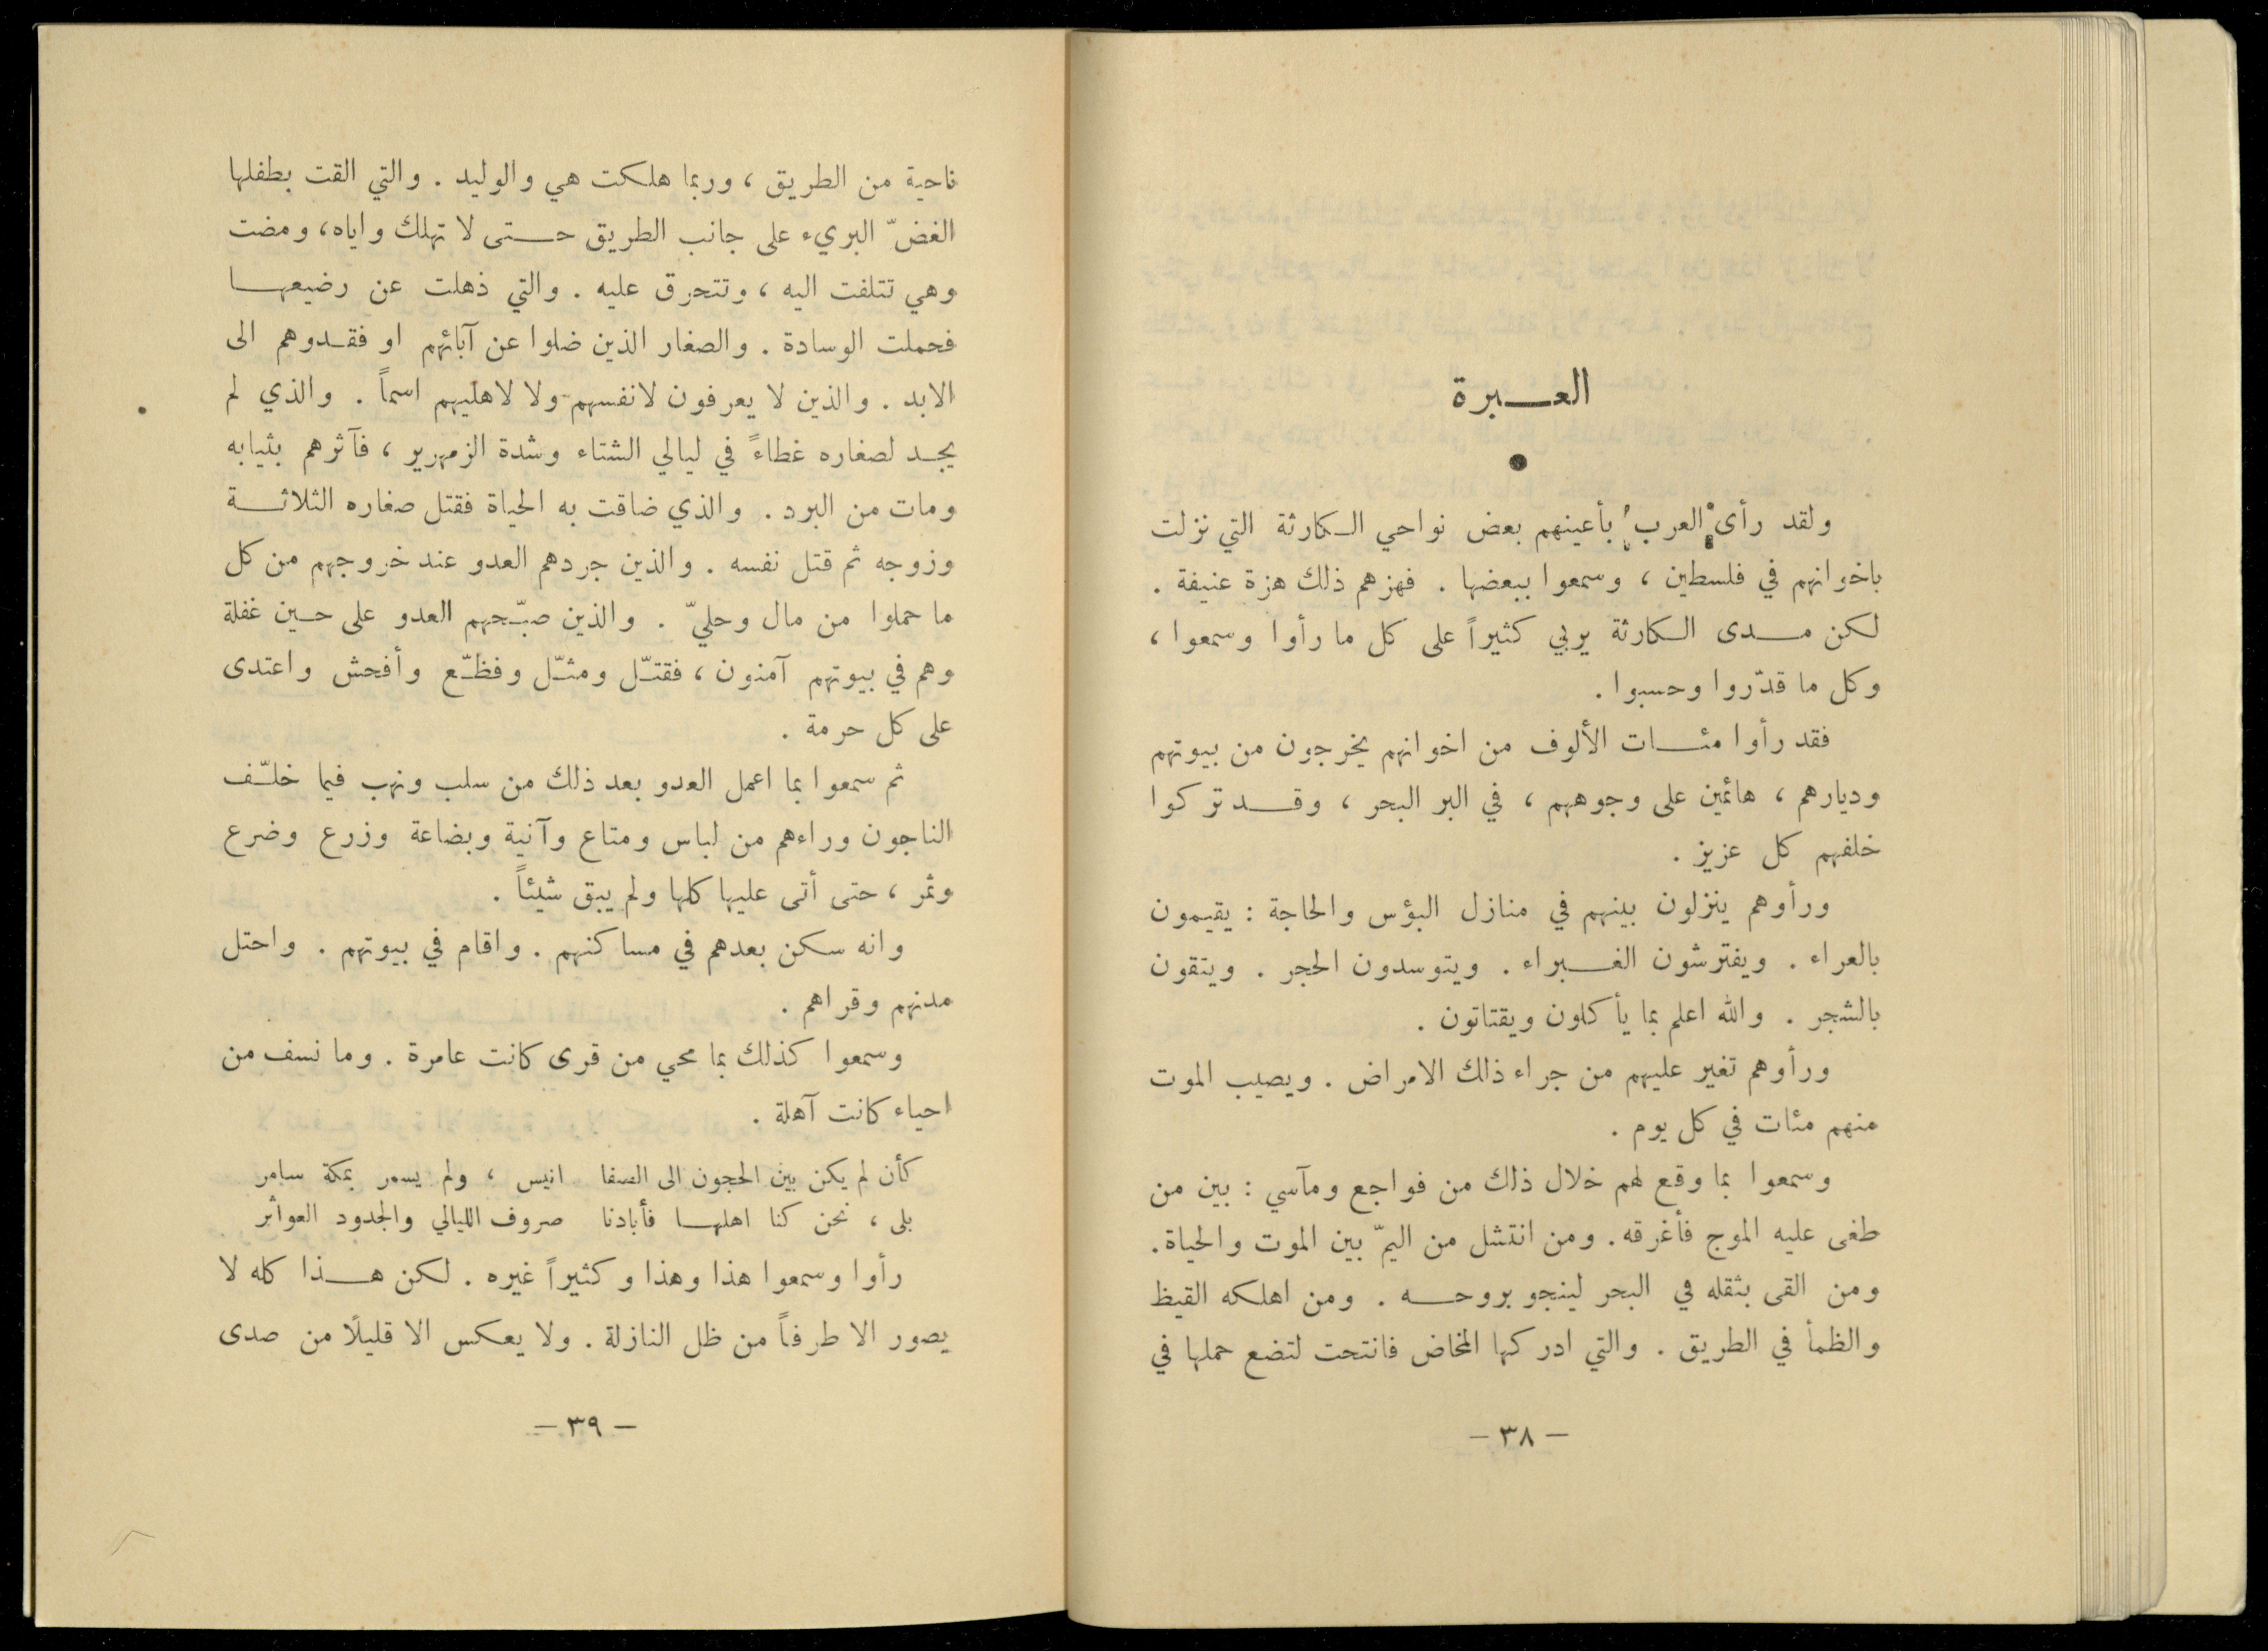 العـــبرة
ولقد رأى العرب بأعينهم بعض نواحي الكارثة التي نزلت
باخوانهم في فلسطين ، وسمعوا ببعضها . فهزهم ذلك هزة عنيفة .
لكن مدى الكارثة يربي كثيراً على كل ما رأوا وسمعوا ،
وكل ما قدّروا وحسبوا .
فقد رأوا مئات الألوف من اخوانهم يخرجون من بيوتهم
وديارهم ، هائمين على وجوههم ، في البر البحر ، وقد تركوا
خلفهم كل عزيز .
ورأوهم ينزلون بينهم في منازل البؤس والحاجة : يقيمون
بالعراء . ويفترشون الغبراء . ويتوسدون الحجر . ويتقون
بالشجر . والله اعلم بما يأكلون ويقتاتون .
ورأوهم تغير عليهم من جراء ذلك الامراض . ويصيب الموت
منهم مئات في كل يوم .
وسمعوا بما وقع لهم خلال ذلك من فواجع ومآسي : بين من
طغى عليه الموج فأغرقه . ومن انتشل من اليمّ بين الموت والحياة .
ومن القى بثقله في البحر لينجو بروحه . ومن اهلكه القيظ
والظمأ في الطريق . والتي ادركها المخاض فانتحت لتضع حملها في
– ٣٨ –
ناحية من الطريق ، وربما هلكت هي والوليد . والتي القت بطفلها
الغضّ البريء على جانب الطريق حتى لا تهلك واياه ، ومضت
وهي تتلفت اليه ، وتتحرق عليه . والتي ذهلت عن رضيعها
فحملت الوسادة . والصغار الذين ضلوا عن آبائهم او فقدوهم الى
الابد . والذين لا يعرفون لانفسهم ولا لاهليهم اسماً . والذي لم
يجد لصغاره غطاءً في ليالي الشتاء وشدة الزمهرير ، فآثرهم بثيابه
ومات من البرد . والذي ضاقت به الحياة فقتل صغاره الثلاثة
وزوجه ثم قتل نفسه . والذين جردهم العدو عند خروجهم من كل
ما حملوا من مال وحليّ . والذين صبّحهم العدو على حين غفلة
وهم في بيوتهم آمنون ، فقتّل ومثّل وفظّع وأفحش واعتدى
على كل حرمة .
ثم سمعوا بما اعمل العدو بعد ذلك من سلب ونهب فيما خلّف
الناجون وراءهم من لباس ومتاع وآنية وبضاعة وزرع وضرع
وثمر ، حتى أتى عليها كلها ولم يبق شيئاً .
وانه سكن بعدهم في مساكنهم . واقام في بيوتهم . واحتل
مدنهم وقراهم .
وسمعوا كذلك بما محي من قرى كانت عامرة . وما نسف من
احياء كانت آهلة .
كأن لم يكن بين الحجون الى الصفا انيس ، ولم يسمر بمكة سامر
بلى ، نحن كنا اهلها فأبادنا صروف الليالي والجدود العواثر
رأوا وسمعوا هذا وهذا وكثيراً غيره . لكن هذا كله لا
يصور الا طرفاً من ظل النازلة . ولا يعكس الا قليلًا من صدى
– ٣٩ –